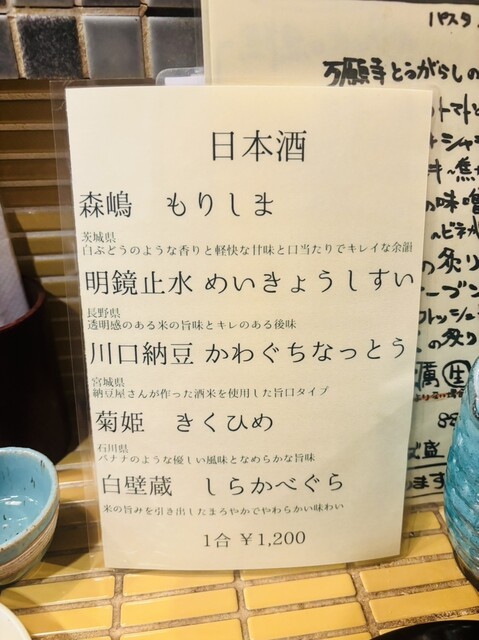 日本酒
森嶋 もりしま
茨城県
白ぶどうのような香りと軽快な甘味と口当たりでキレイな余韻
明鏡止水 めいきょうしすい
長野県
透明感のある米の旨味とキレのある後味
川口納豆 かわぐちなっとう
宮城県
納豆屋さんが作った酒米を使用した旨口タイプ
菊姫 きくひめ
石川県
バナナのような優しい風味となめらかな旨味
白壁蔵 しらかべぐら
米の旨みを引き出したまろやかでやわらかい味わい
1合 ¥1,200
パスタ
万願寺とうがらしの
トマトと
の味噌
の炙り
の炙り